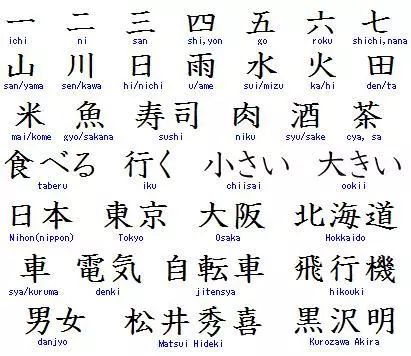 一 二 三 四 五 六 七
ichi ni san shi,yon go roku shichi,nana
山 川 日 雨 水 火 田
san/yama sen/kawa hi/nichi u/ame sui/mizu ka/hi den/ta
米 魚 寿司 肉 酒 茶
mai/kome gyo/sakana sushi niku syu/sake cya, sa
食べる 行く 小さい 大きい
taberu iku chiisai ookii
日本 東京 大阪 北海道
Nihon(nippon) Tokyo Osaka Hokkaido
車 電気 自転車 飛行機
sya/kuruma denki jitensya hikouki
男女 松井秀喜 黒沢明
danjyo Matsui Hideki Kurozawa Akira